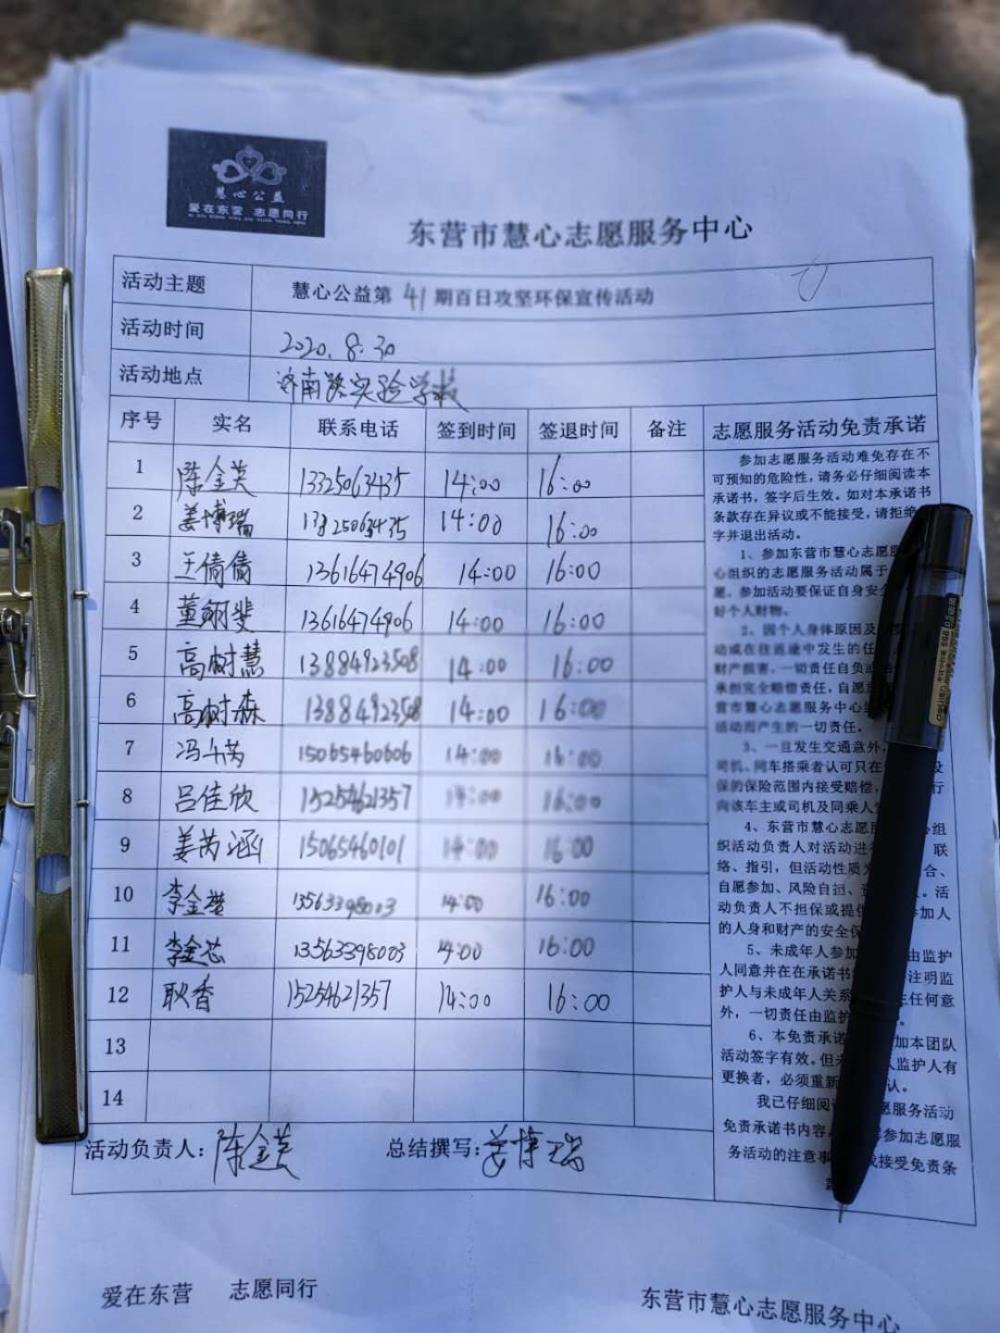 慧心公益
爱在东营 志愿同行
东营市慧心志愿服务中心
活动主题 慧心公益第41期百日攻坚环保宣传活动
活动时间 2020.8.30
活动地点 济南路实验学校
序号 实名 联系电话 签到时间 签退时间 备注 志愿服务活动免责承诺
1 陈金英 13325063435 14:00 16:00
2 姜博瑞 14:00 16:00
3 王倩倩 13616474906 14:00 16:00
4 董姵斐 13616474906 14:00 16:00
5 高树慧 13884923508 14:00 16:00
6 高树森 13884923508 14:00 16:00
7 15065460606 14:00 16:00
8 吕佳欣 15254621357 14:00 16:00
9 姜芮涵 15065460101 14:00 16:00
10 13563398003 14:00 16:00
11 李金芯 13563398003 14:00 16:00
12 耿香 15254621357 14:00 16:00
13
14
参加志愿服务活动难免存在不
可预知的危险性，请务必仔细阅读本
承诺书，签字后生效。如对本承诺书
条款存在异议或不能接受，请拒绝
字并退出活动。
1、参加东营市慧心志愿服
心组织的志愿服务活动属于
愿。参加活动要保证自身安全
好个人财物。
2、因个人身体原因及
动或在往返途中发生的任
财产损害，一切责任自负
承担完全赔偿责任，自愿
营市慧心志愿服务中心
活动而产生的一切责任。
3、一旦发生交通意外，
司机、同车搭乘者认可只在 及
保的保险范围内接受赔偿， 行
向该车主或司机及同乘人
4、东营市慧心志愿服 心组
织活动负责人对活动进 联
络、指引，但活动性质为 合、
自愿参加、风险自担、 。活
动负责人不担保或提 参加人
的人身和财产的安全保
5、未成年人参加 由监护
人同意并在在承诺书 注明监
护人与未成年人关系 生任何意
外，一切责任由监护 。
6、本免责承诺 加本团队
活动签字有效。但未 人监护人有
更换者，必须重新 认。
我已仔细阅 愿服务活动
免责承诺书内容， 参加志愿服
务活动的注意事 接受免责条
活动负责人：陈金英 总结撰写：姜博瑞
爱在东营 志愿同行 东营市慧心志愿服务中心